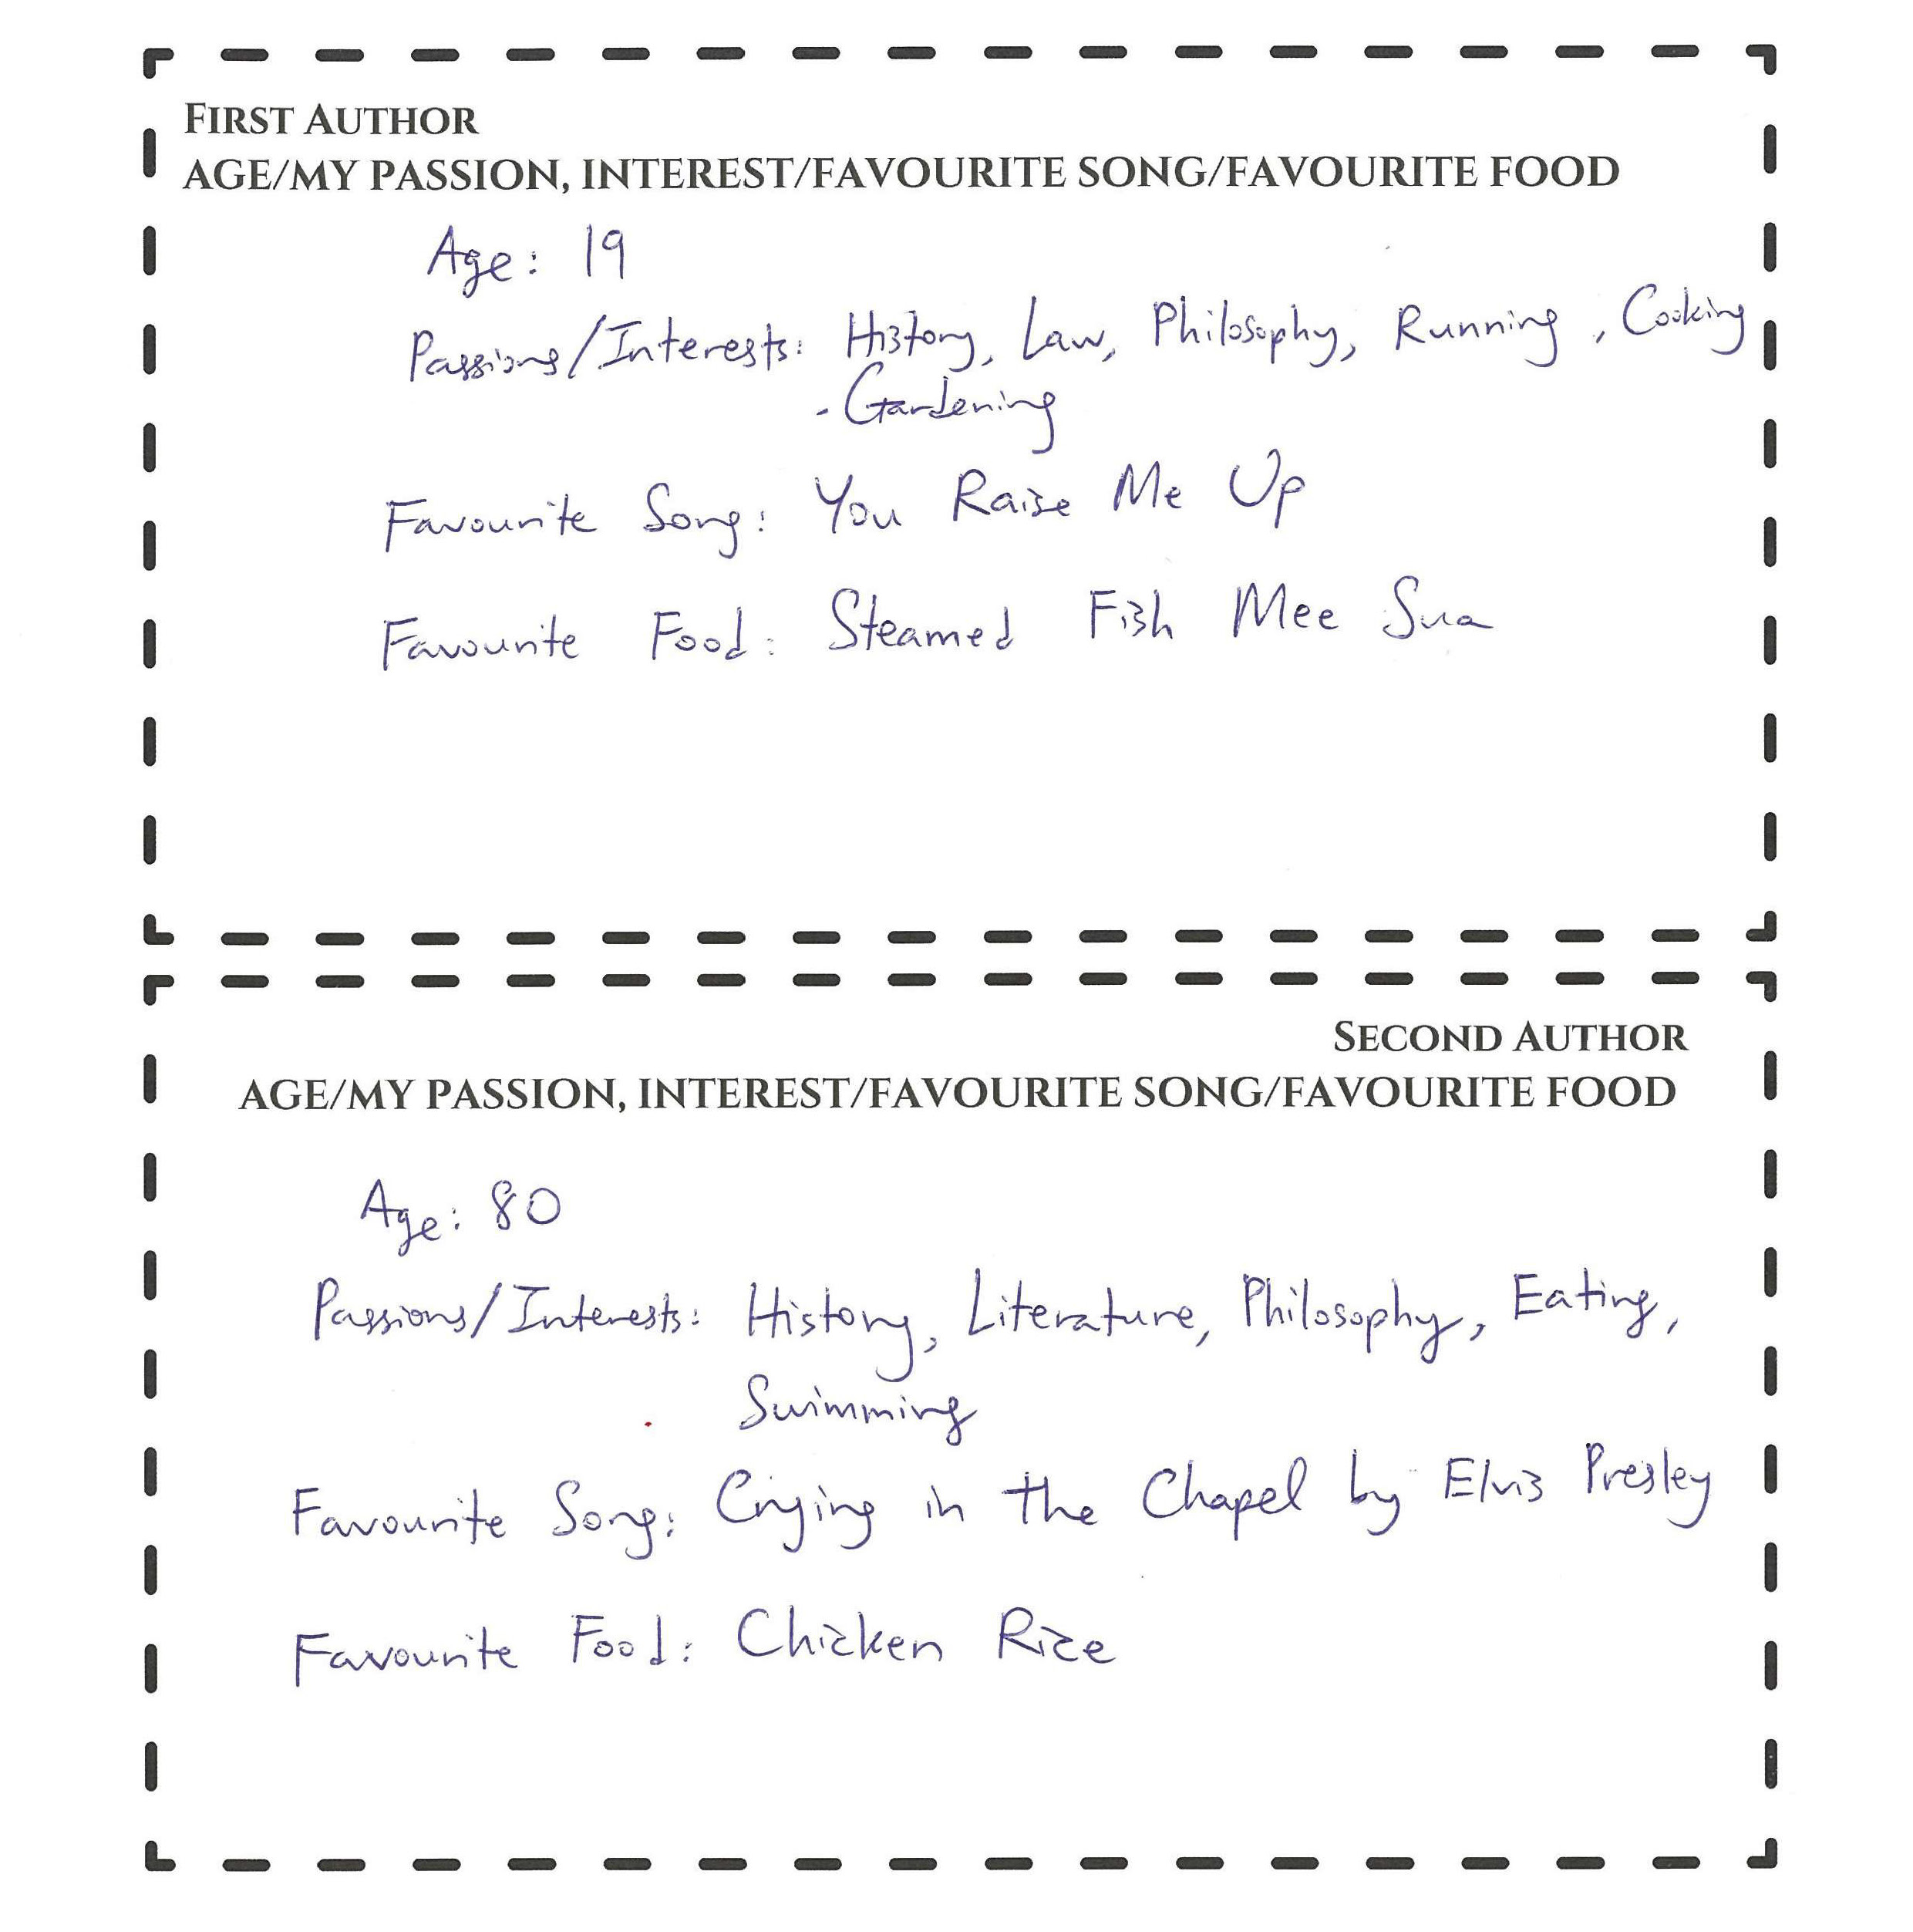 FIRST AUTHOR
AGE/MY PASSION, INTEREST/FAVOURITE SONG/FAVOURITE FOOD
Age: 19
Passions/Interests: History, Law, Philosophy, Running, Cooking
- Gardening
Favourite Song: You Raise Me Up
Favourite Food: Steamed Fish Mee Sua
SECOND AUTHOR
AGE/MY PASSION, INTEREST/FAVOURITE SONG/FAVOURITE FOOD
Age: 80
Passions/Interests: History, Literature, Philosophy, Eating,
Swimming
Favourite Song: Crying in the Chapel by Elvis Presley
Favourite Food: Chicken Rice